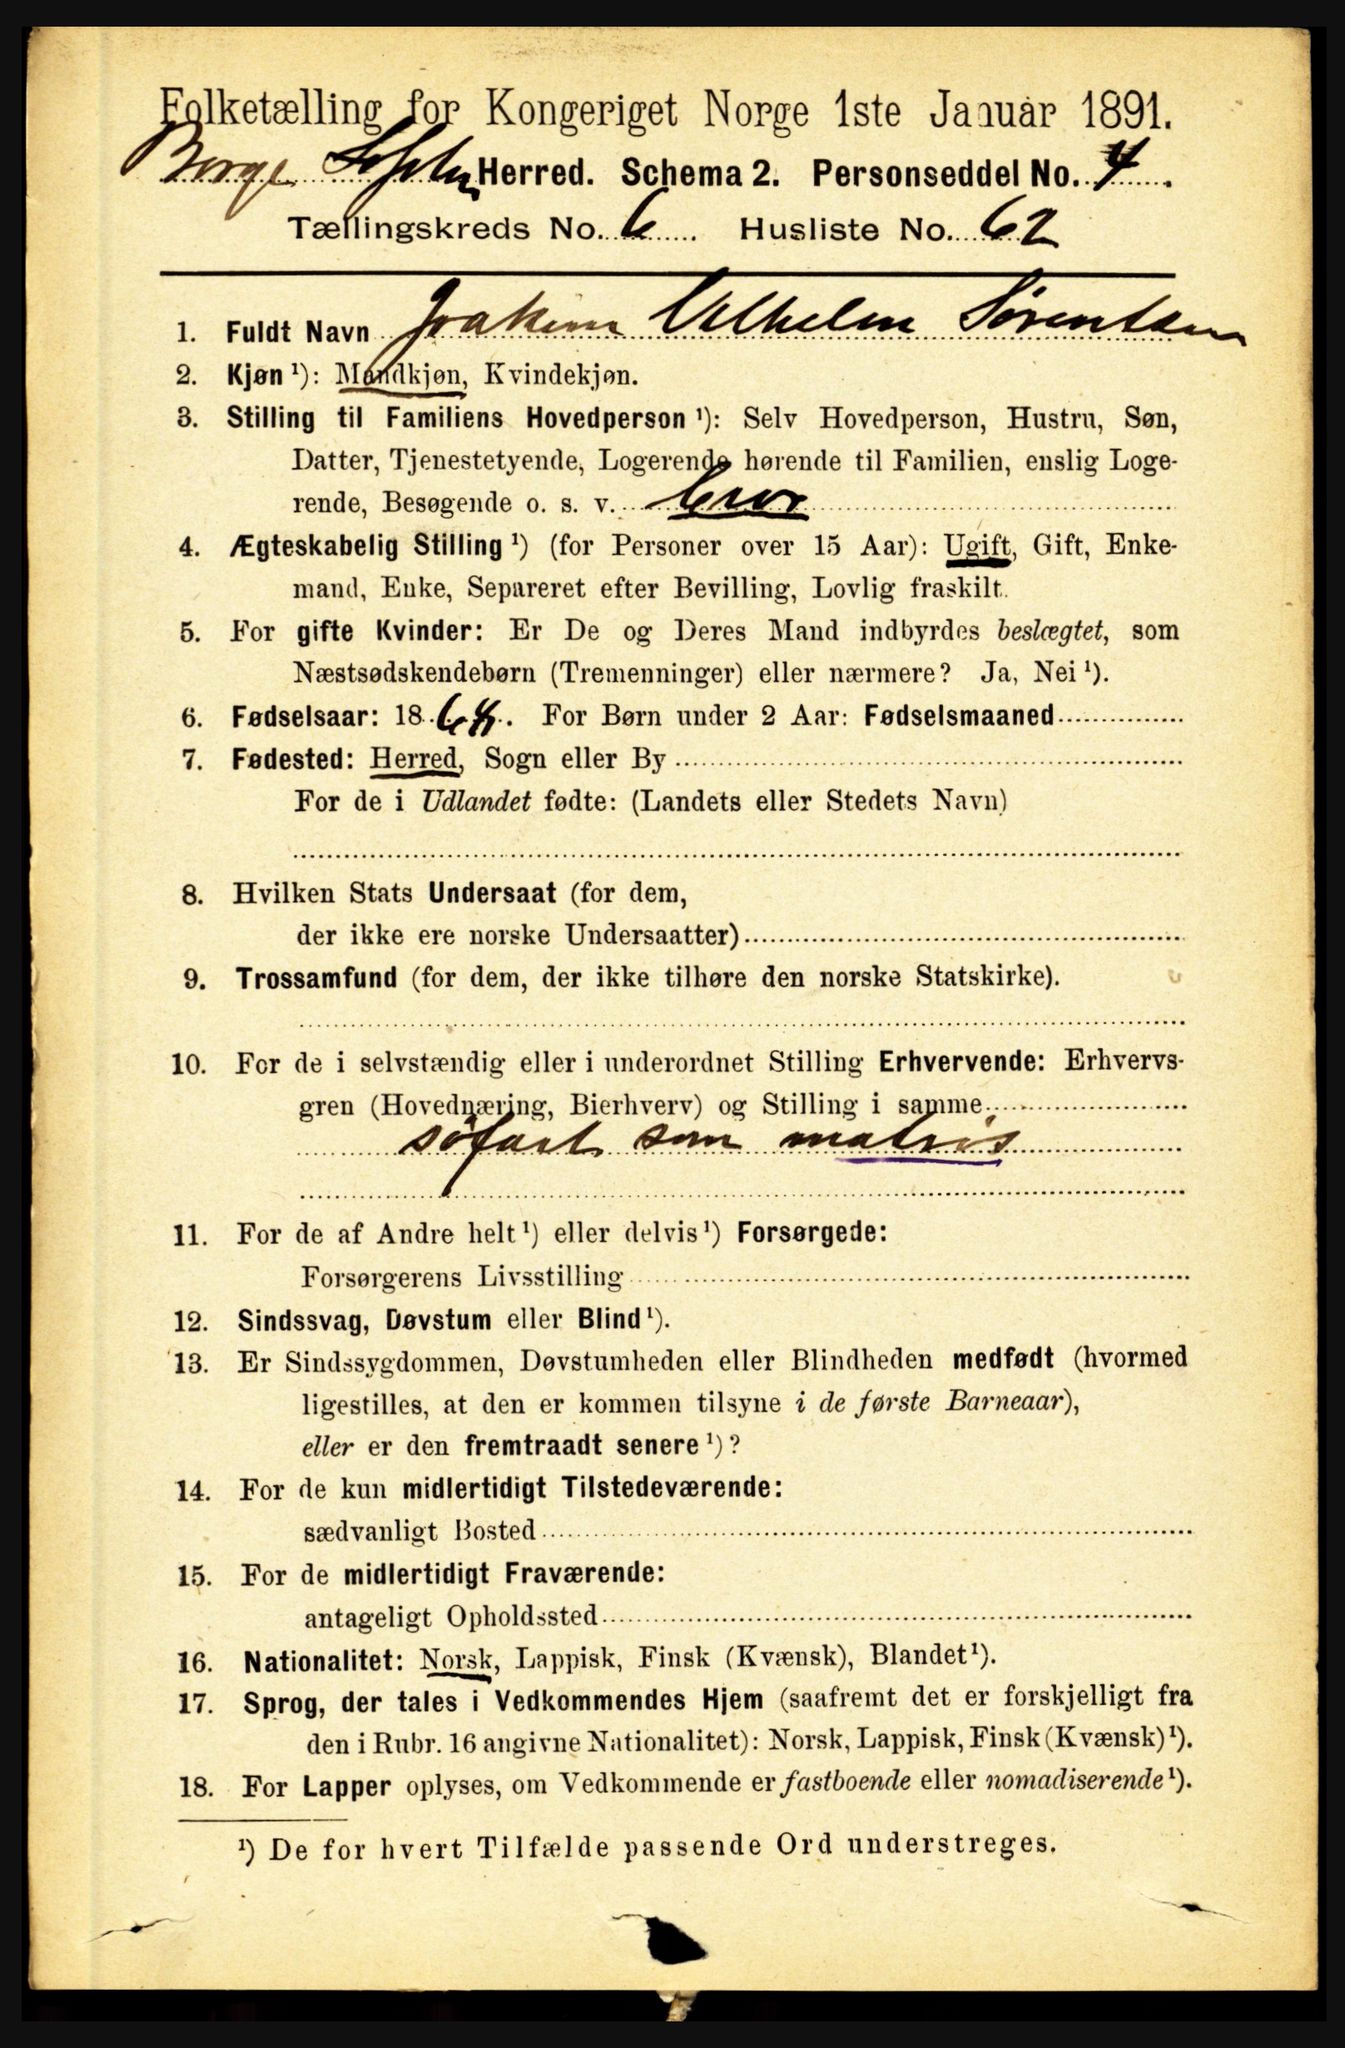 Folketælling for Kongeriget Norge 1ste Januar 1891.
Borge Herred. Schema 2. Personseddel No. 4.
Tællingskreds No. 6. Husliste No. 62
1. Fuldt Navn Joakim Vilhelm Sörentsen
2. Kjøn ¹): Mandkjøn, Kvindekjøn.
3. Stilling til Familiens Hovedperson ¹): Selv Hovedperson, Hustru, Søn,
Datter, Tjenestetyende, Logerende hørende til Familien, enslig Loge-
rende, Besøgende o. s. v.
4. Ægteskabelig Stilling ¹) (for Personer over 15 Aar): Ugift, Gift, Enke-
mand, Enke, Separeret efter Bevilling, Lovlig fraskilt.
5. For gifte Kvinder: Er De og Deres Mand indbyrdes beslægtet, som
Næstsødskendebørn (Tremenninger) eller nærmere? Ja, Nei ¹).
6. Fødselsaar: 1864. For Børn under 2 Aar: Fødselsmaaned
7. Fødested: Herred, Sogn eller By
For de i Udlandet fødte: (Landets eller Stedets Navn)
8. Hvilken Stats Undersaat (for dem,
der ikke ere norske Undersaatter)
9. Trossamfund (for dem, der ikke tilhøre den norske Statskirke).
10. For de i selvstændig eller i underordnet Stilling Erhvervende: Erhvervs-
gren (Hovednæring, Bierhverv) og Stilling i samme
söfart som matros
11. For de af Andre helt ¹) eller delvis ¹) Forsørgede:
Forsørgerens Livsstilling
12. Sindssvag, Døvstum eller Blind ¹).
13. Er Sindssygdommen, Døvstumheden eller Blindheden medfødt (hvormed
ligestilles, at den er kommen tilsyne i de første Barneaar),
eller er den fremtraadt senere ¹)?
14. For de kun midlertidigt Tilstedeværende:
sædvanligt Bosted
15. For de midlertidigt Fraværende:
antageligt Opholdssted
16. Nationalitet: Norsk, Lappisk, Finsk (Kvænsk), Blandet ¹).
17. Sprog, der tales i Vedkommendes Hjem (saafremt det er forskjelligt fra
den i Rubr. 16 angivne Nationalitet): Norsk, Lappisk, Finsk (Kvænsk) ¹).
18. For Lapper oplyses, om Vedkommende er fastboende eller nomadiserende ¹).
¹) De for hvert Tilfælde passende Ord understreges.